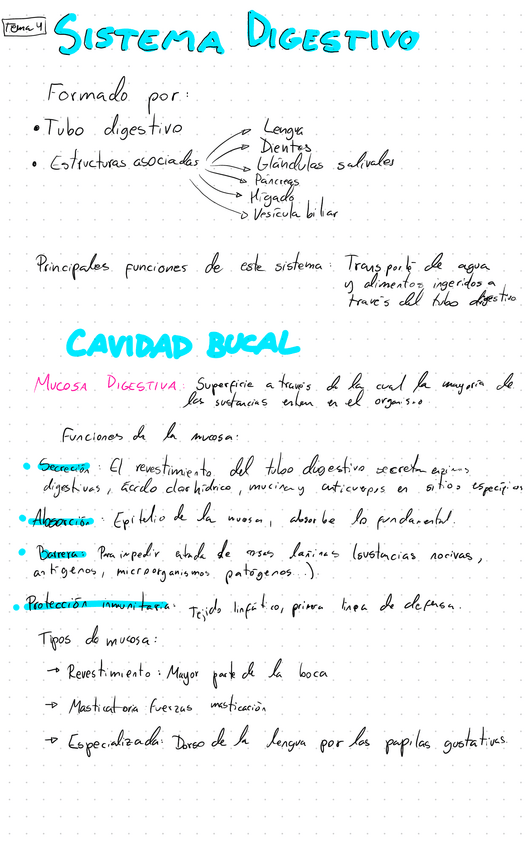 Tema 4
SISTEMA DIGESTIVO
Formado por:
• Tubo digestivo
• Estructuras asociadas
Lengua
Dientes
Glándulas salivales
Páncreas
Hígado
Vesícula biliar
Principales funciones de este sistema: Transporte de agua
y alimentos ingeridos a
través del tubo digestivo
CAVIDAD BUCAL
MUCOSA DIGESTIVA: Superficie a través de la cual la mayoría de
las sustancias entran en el organismo
Funciones de la mucosa:
• Secreción: El revestimiento del tubo digestivo secretan
digestivas, ácido clorhídrico, mucina y anticuerpos en sitios específicos
• Absorción: Epitelio de la mucosa, absorbe lo fundamental.
• Barrera: Para impedir de cosas (sustancias nocivas,
antígenos, microorganismos patógenos..).
• Protección inmunitaria: Tejido linfático, primera línea de defensa.
Tipos de mucosa:
→ Revestimiento: Mayor parte de la boca
→ Masticatoria fuerzas masticación
→ Especializada: Dorso de la lengua por las papilas gustativas.